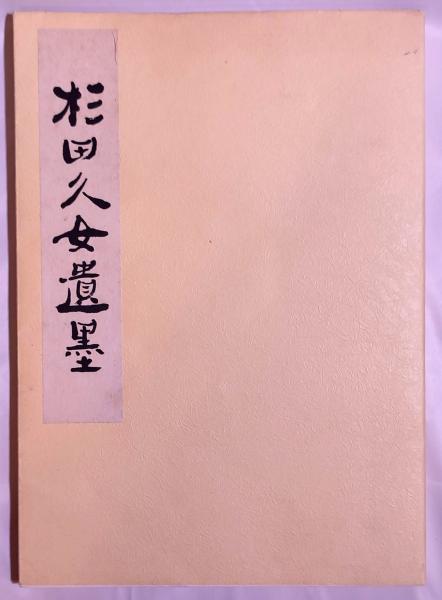 杉田久女遺墨